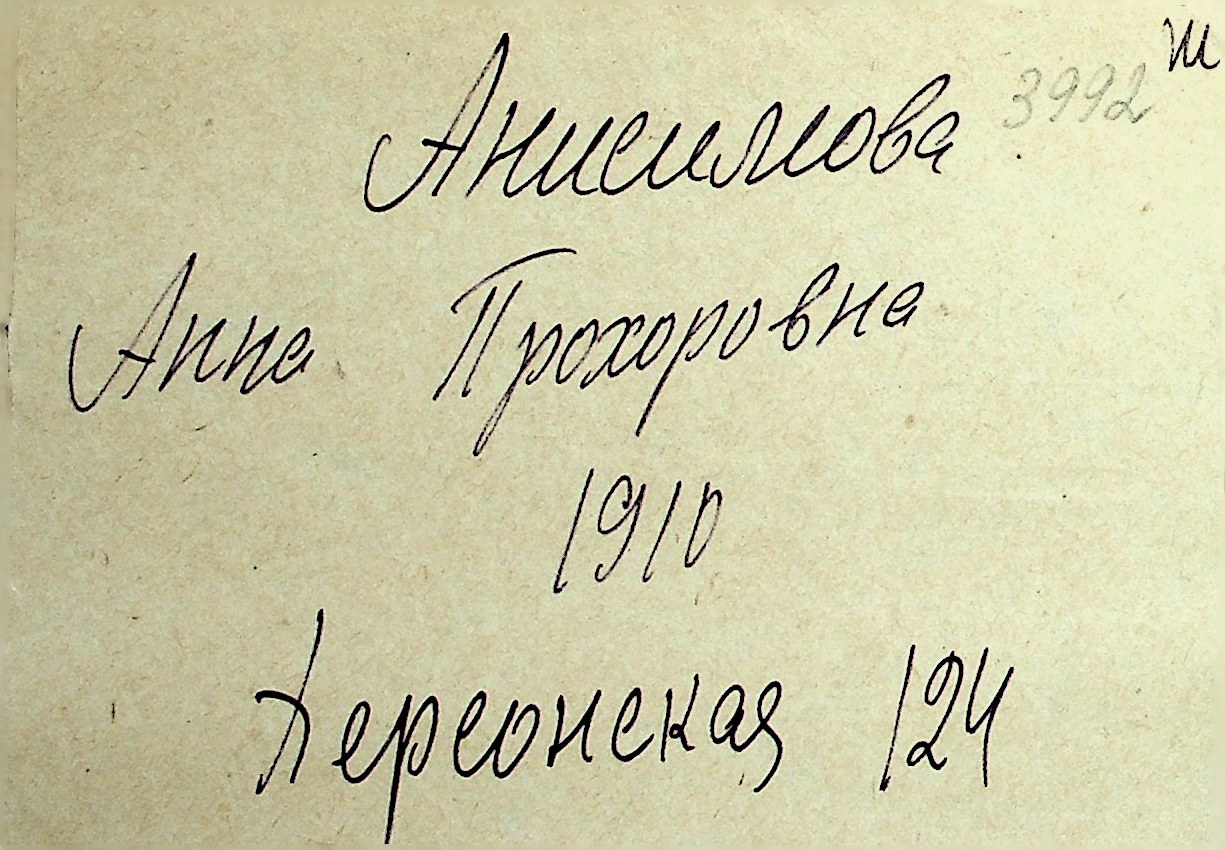 Анисимова 3992 Ш
Анна Прохоровна
1910
Херсонская 124